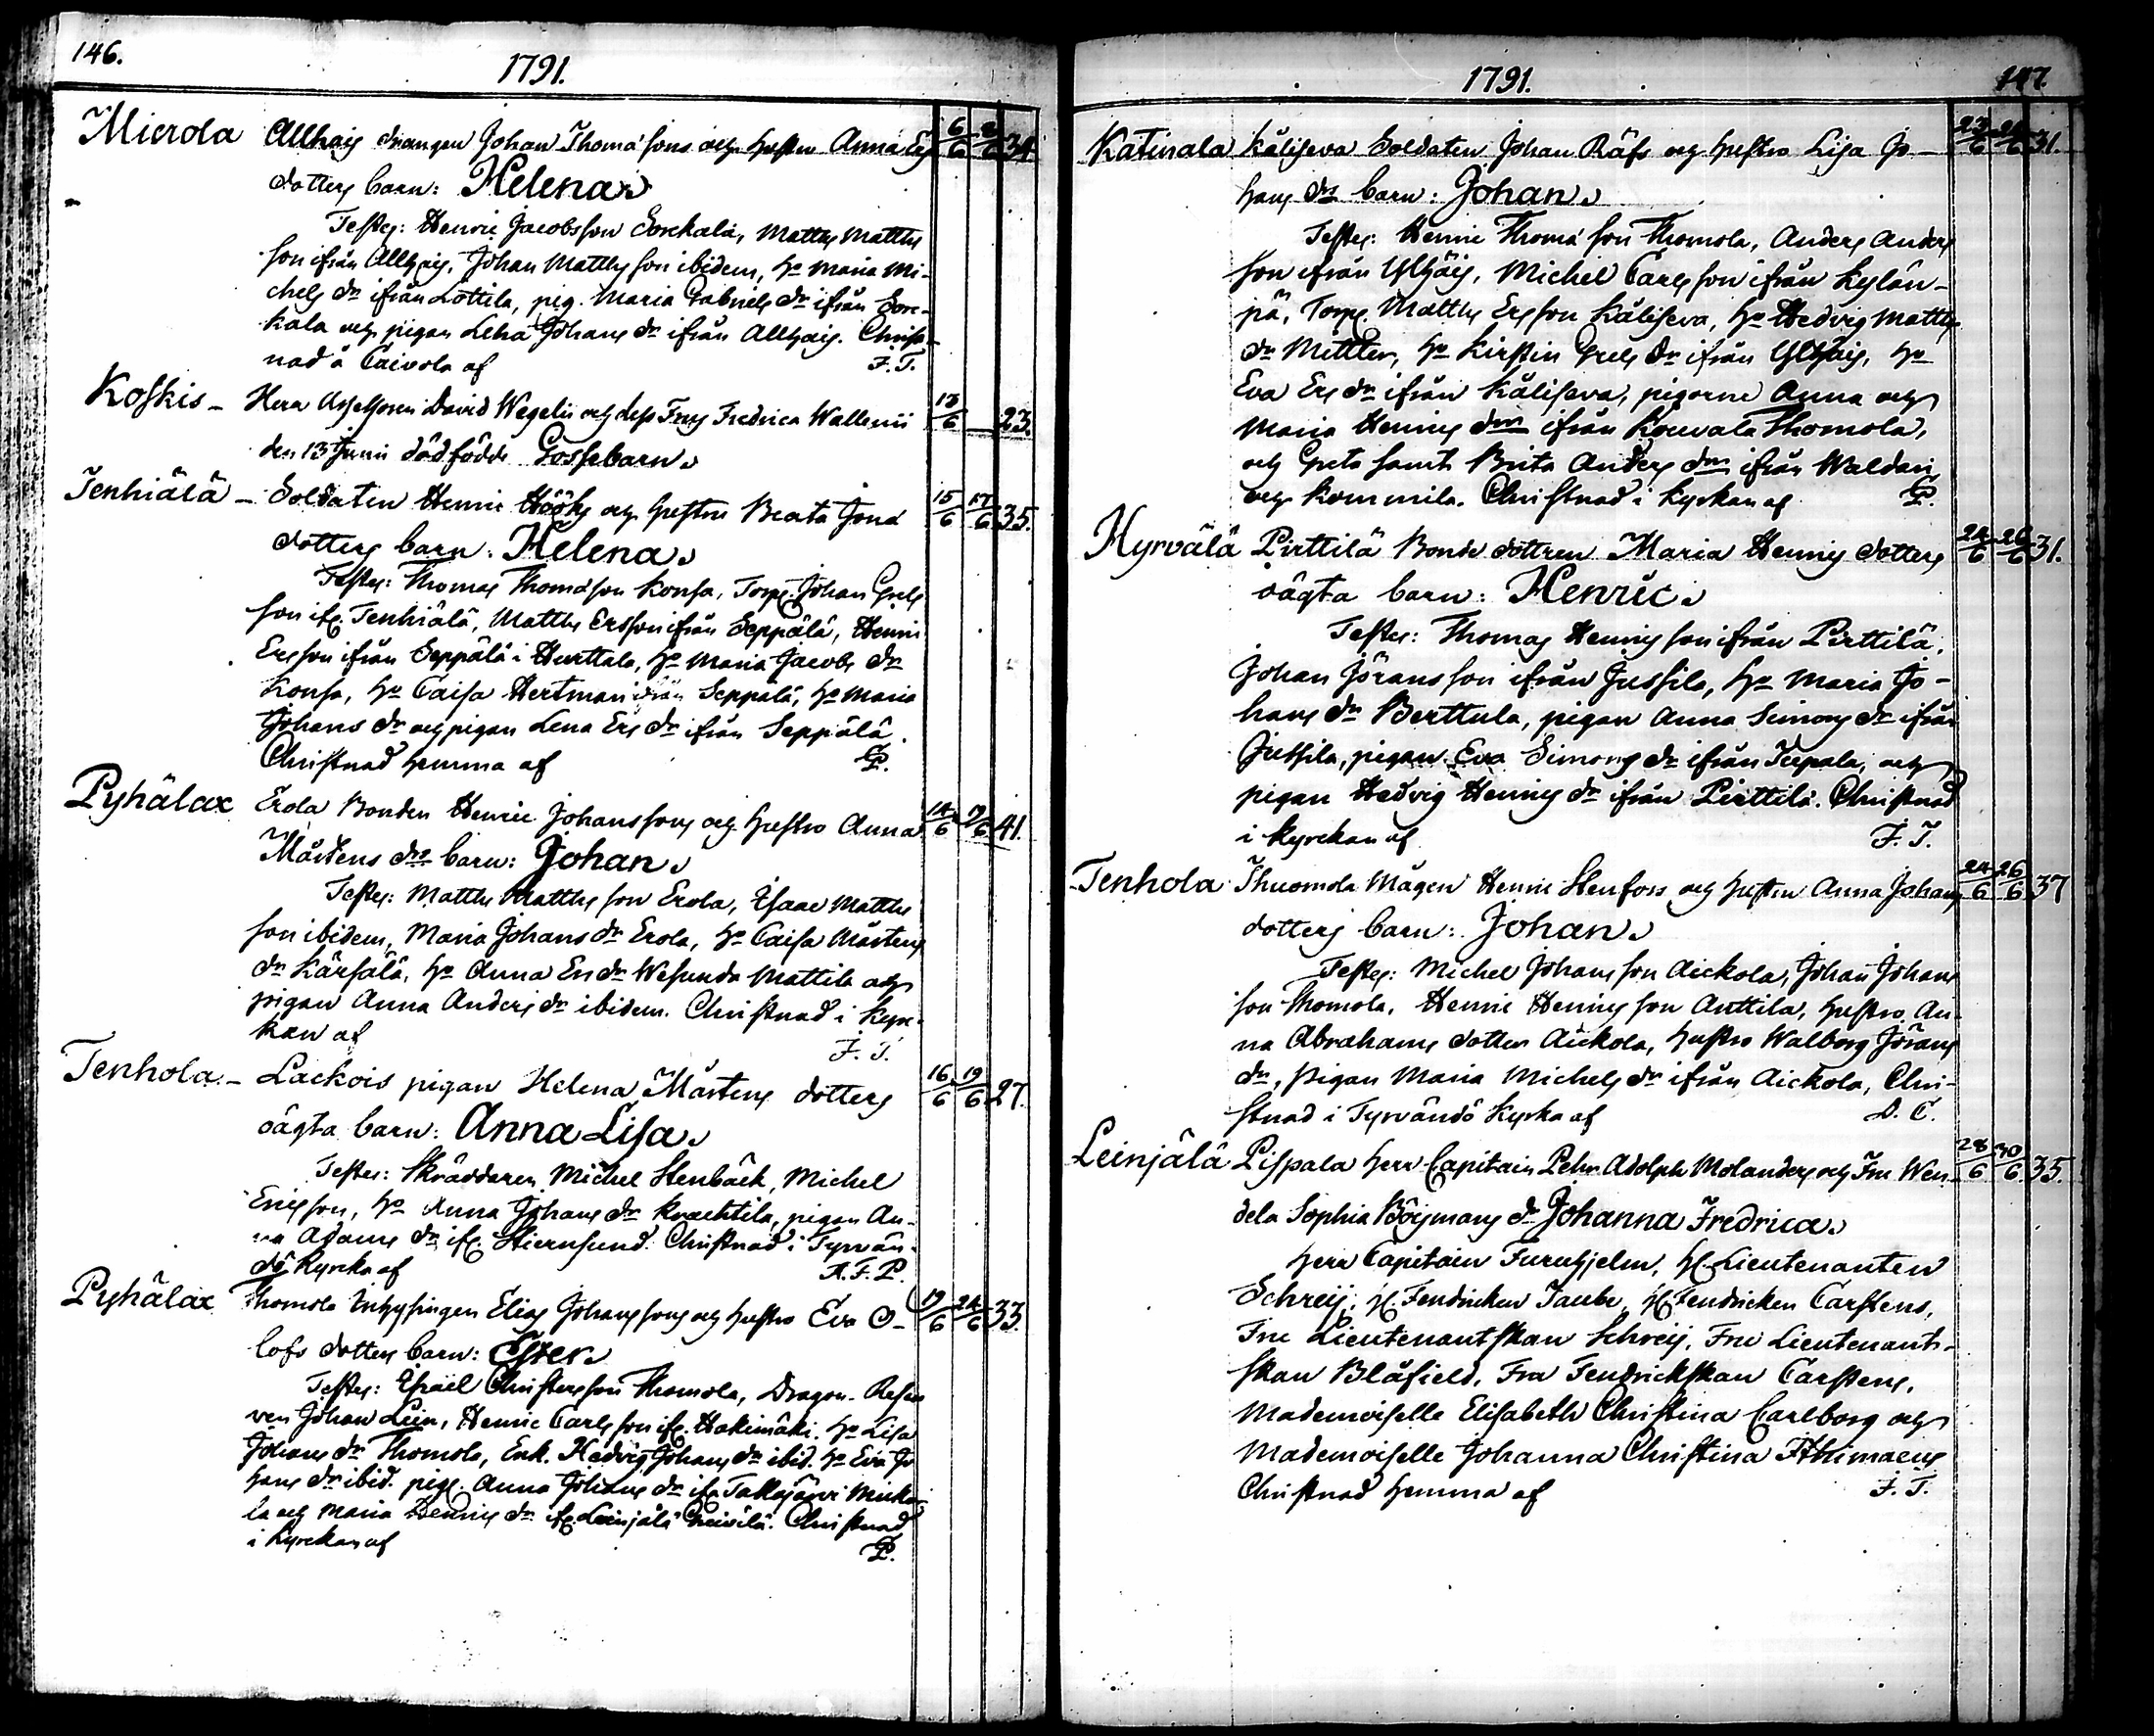 146.
1791.
Mierola Allhais drangen Johan Thomæ sons och hustru Anna 6/6 34.
dotters barn: Helena
Testes: Henric Jacobsson Sorckala, Matths Matths
son ifrån Allhais, Johan Matths son ibidem, h:o Maria Mi-
chels dr ifrån Lottila, pig. Maria Gabriels dr ifrån Sorc-
kala och pigan Lena Johans dr ifrån Allhais. Christ-
nad å Caivola af F. T.
Koskis - Herr David Wegelii och dess Frus Fredrica Wallenii 13/6 23.
den 13 Junii dödfödde Gossebarn
Tenhiälä - Soldaten Henric Hööks och hustru Beata Jonæ 15/6 17/6 35.
dotters barn: Helena
Testes: Thomas Thomæson Konsa, Torp. Johan Grels
son ifr. Tenhiälä, Matths Ersson ifrån Seppälä, Henric
Ersson ifrån Seppälä i Hurttala, h:o Maria Jacobs dr
Konsa, h:o Caisa Hertman ifrån Seppälä, h:o Maria
Johans dr och pigan Lena Ers dr ifrån Seppälä.
Christnad hemma af P.
Pyhälax Erola Bonden Henric Johanssons och hustru Anna 14/6 19/6 41.
Mårtens drs barn: Johan
Testes: Matths Matths son Erola, Isaac Matths
son ibidem, Maria Johans dr Erola, h:o Caisa Mårtens
dr Kärsälä, h:o Anna Ers dr Wesunda Mattila och
pigan Anna Anders dr ibidem. Christnad i Kyr-
kan af F. T.
Tenhola - Lackois pigan Helena Mårtens dotters 16/6 19/6 27.
oägta barn: Anna Lisa
Testes: Skräddaren Michel Stenbäck, Michel
Ericsson, h:o Anna Johans dr Knachtila, pigan An-
na Adams dr ifr. Stiernsund. Christnad i Tyrvän-
dö Kyrcka af A. F. P.
Pyhälax Thomola Inhysingen Elias Johanssons och hustru Eva O- 19/6 24/6 33.
lofs dotters barn: Ester
Testes: Israel Christersson Thomola, Dragon-
Johan Lein, Henric Carls son ifr. Hakimäki, h:o Lisa
Johans dr Thomola, Enk. Hedvig Johans dr ibid. h:o Eva Jo
hans dr ibid. pig. Anna Johans dr ifr.
la och Maria Henrics dr ifr. Leinjälä. Christnad
i Kyrckan af P.
1791.
147.
Katinala Kåliseva Soldaten Johan Räfs och hustru Lisa Jo- 23/6 26/6 31.
hans drs barn: Johan
Testes: Henric Thomæ son Thomola, Anders Anders
son ifrån Ylhäis, Michel Carlsson ifrån Keylän-
pä, Torp. Matths Ersson Kåliseva, h:o Hedvig Matths
dr Mittler, h:o Kirstin Grels dr ifrån Ylhäis, h:o
Eva Ers dr ifrån Kåliseva, pigorne Anna och
Maria Henrics drar ifrån Kouvala Thomola,
och Greta samt Brita Anders drar ifrån
och Kommila. Christnad i Kyrkan af P.
Hyrvälä Pirttilä Bonde dottren Maria Henrics dotters 24/6 26/6 31.
oägta barn: Henric
Testes: Thomas Henrics son ifrån Pirttilä,
Johan Jöransson ifrån Jussila, h:o Maria Jo-
hans dr Berttula, pigan Anna Simons dr ifrån
Jussila, pigan Eva Simons dr ifrån Tepala, och
pigan Hedvig Henrics dr ifrån Pirttilä. Christnad
i Kyrckan af F. T.
Tenhola Thuomola Mågen Henric Stenfors och hustru Anna Johans 24/6 26/6 37
dotters barn: Johan
Testes: Michel Johans son Aickola, Johan Johans
son Thomola, Henric Henrics son Anttila, hustru An-
na Abrahams dotter Aickola, hustru Walborg Jörans
dr, pigan Maria Michels dr ifrån Aickola, Chri-
stnad i Tyrvändö Kyrka af A. C.
Leinjälä Pispala Herr Capitain Pehr Adolph Molanders och Fru Wen- 28/6 30/6 35.
dela Sophia Böijmans dr Johanna Fredrica
Herr Capitain Furuhjelm, H. Lieutenanten
Schreij, H. Fendricken Taube, H. Fendricken Carstens,
Fru Lieutenantskan Schreij, Fru Lieutenants-
skan Blåfield, Fru Fendrickskan Carstens,
Mademoiselle Elisabeth Christina Carlborg och
Mademoiselle Johanna Christina
Christnad hemma af F. T.